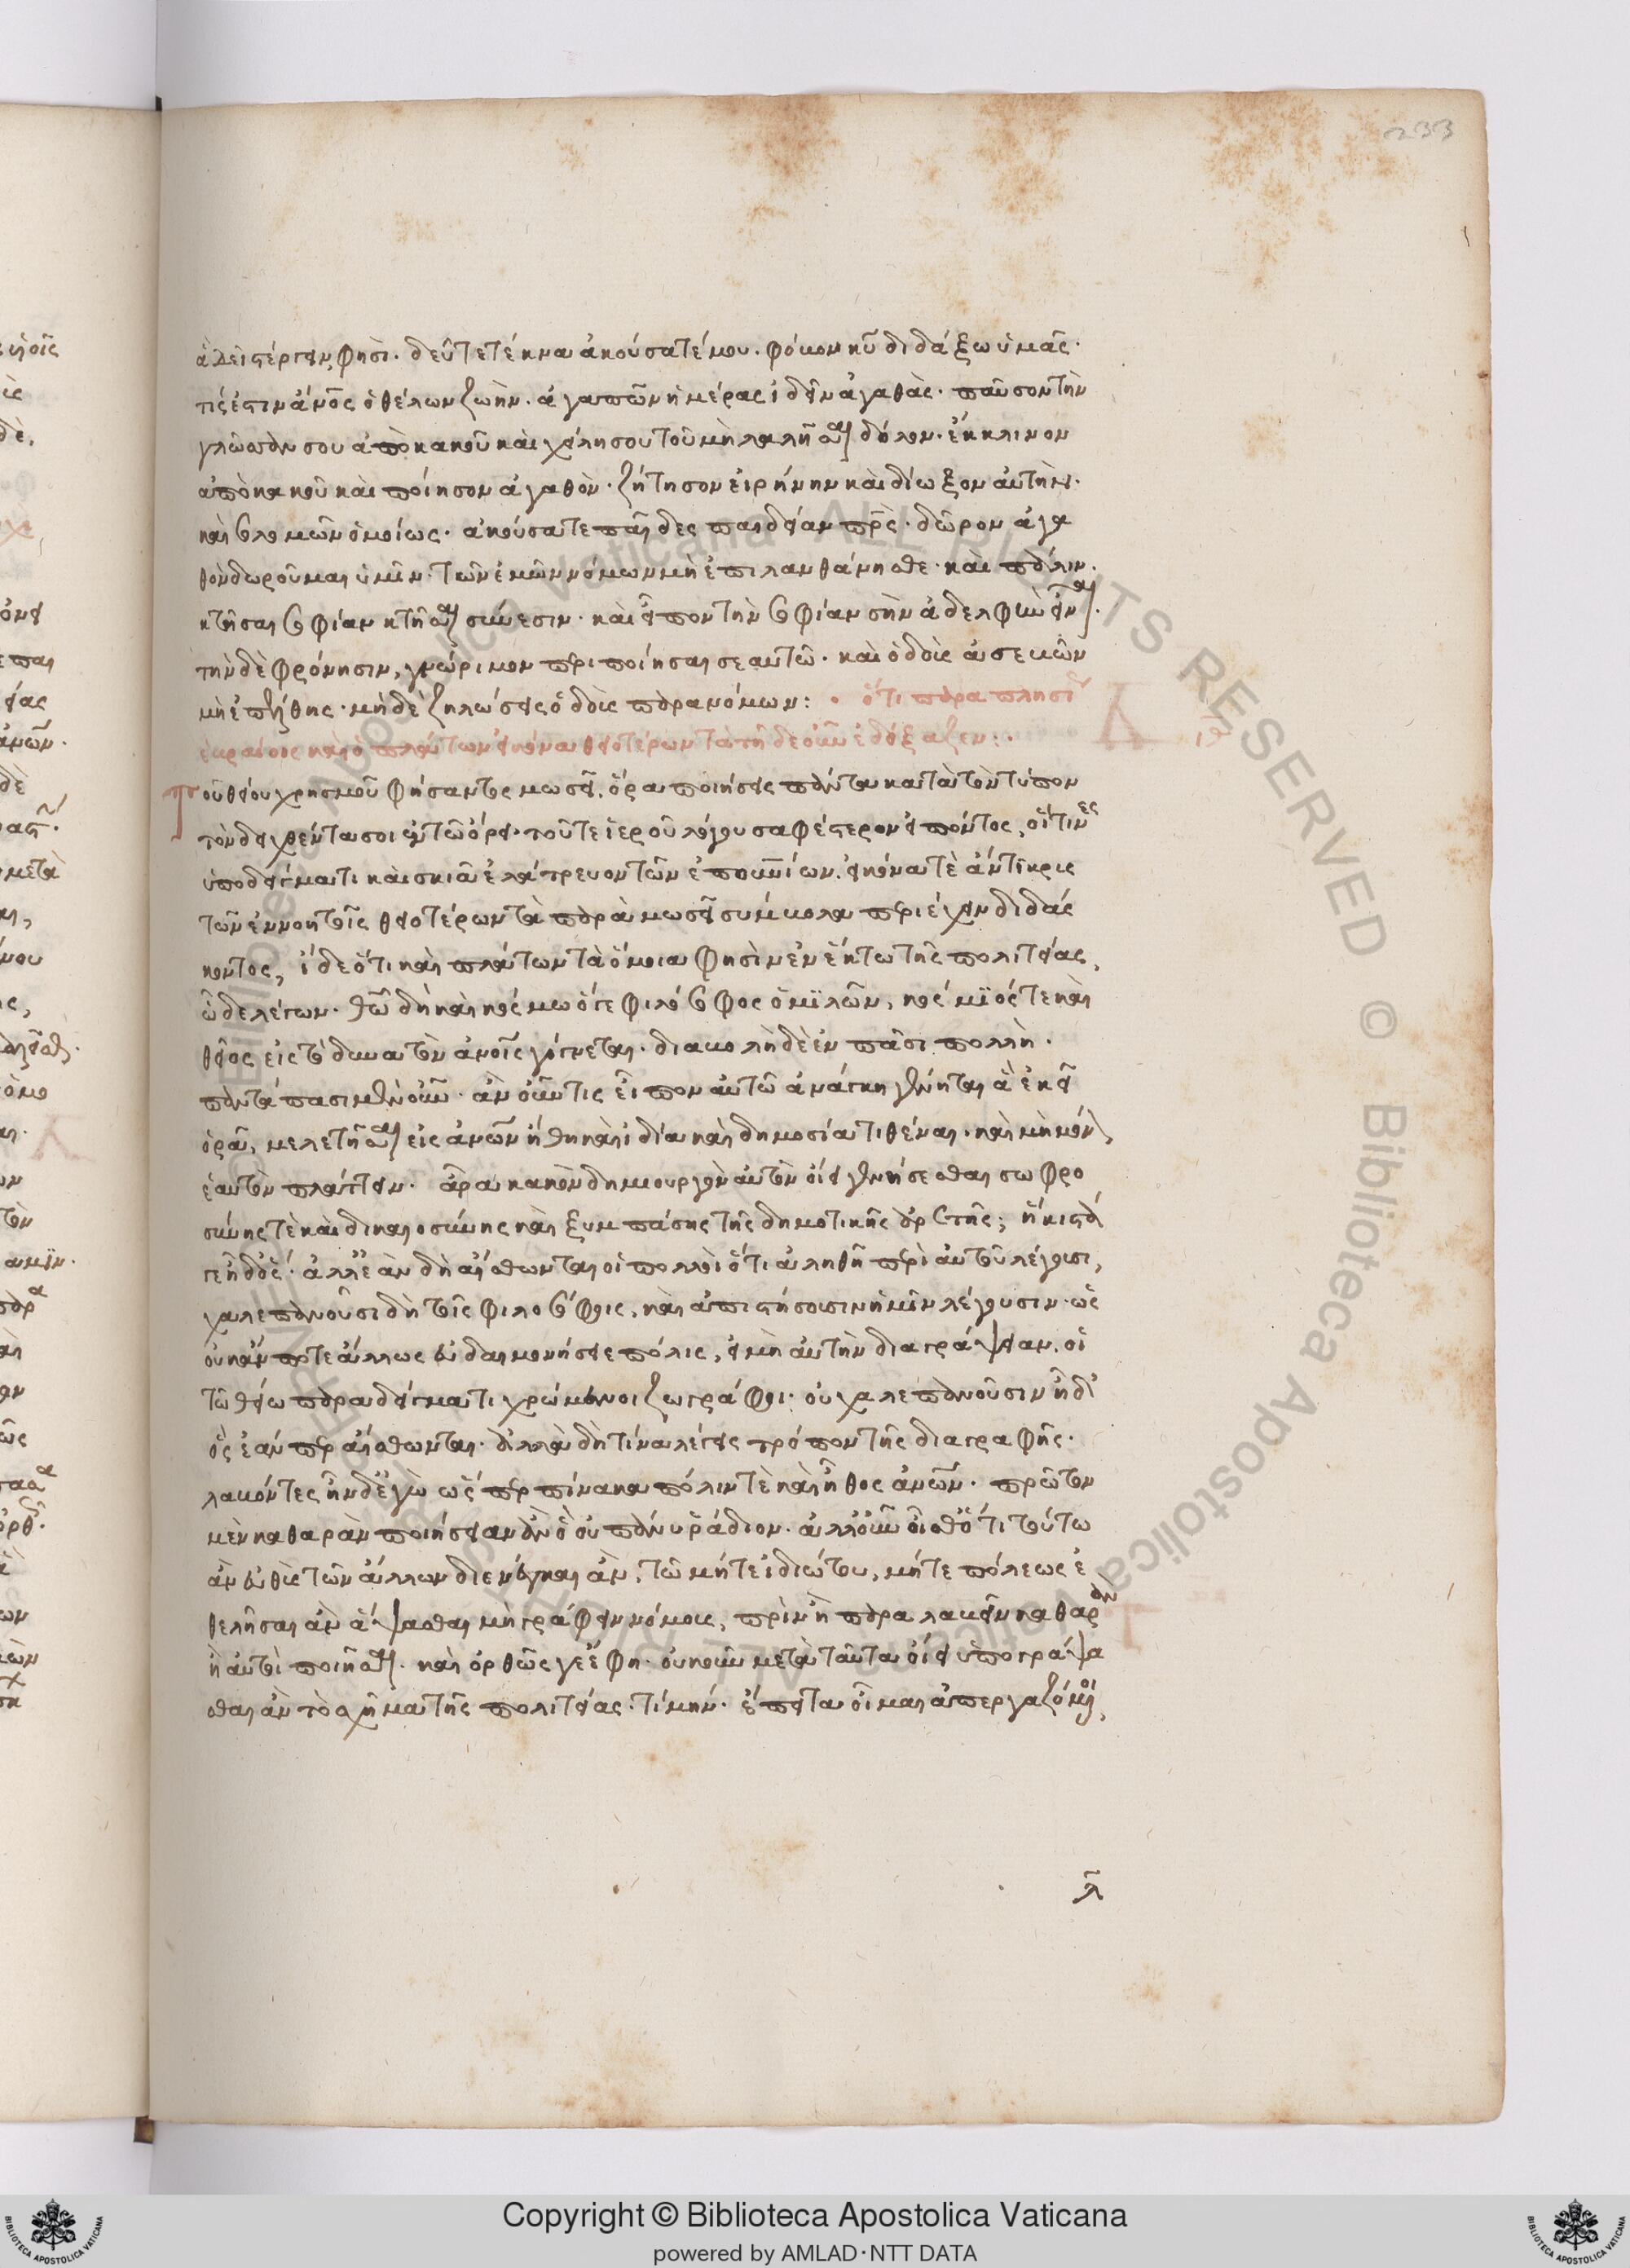 233
ἀλείπτέργειν, φησί. δεῦτε τέκνα ἀκούσατέ μου. φόβον κυ διδάξω ὑμᾶς.
τίς ἐστιν ἄνος ὁ θέλων ζωήν. ἀγαπῶν ἡμέρας ἰδεῖν ἀγαθάς. παῦσον τὴν
γλῶσσάν σου ἀπὸ κακοῦ καὶ χείλη σου τοῦ μὴ λαλῆσαι δόλον. ἔκκλινον
ἀπὸ κακοῦ καὶ ποίησον ἀγαθόν. ζήτησον εἰρήνην καὶ δίωξον αὐτήν.
καὶ σολομῶν ὁμοίως. ἀκούσατε παῖδες παιδείαν πρς. δῶρον ἀγα
θὸν δωροῦμαι ὑμῖν. τῶν ἐμῶν νόμων μὴ ἐπιλανθάνησθε. καὶ πάλιν.
κτῆσαι σοφίαν κτῆσαι σύνεσιν. καὶ εἶπον τὴν σοφίαν σὴν ἀδελφὴν εἶναι.
τὴν δὲ φρόνησιν, γνώριμον περιποίησαι σεαυτῶ. καὶ ὁδοὺς ἀσεβῶν
μὴ ἐπέλθης. μηδὲ ζηλώσεις ὁδοὺς παρανόμων: ὅτι παραπλησί
ἑβραίοις καὶ ὁ πλάτων εἰκόνα θειοτέρων τὰ τῆδε οὖν ἐδόξαζεν:
ιθ
τοῦ θείου χρησμοῦ φήσαντος μωσεῖ. ὅρα ποιήσεις πάντα κατὰ τὸν τύπον
τὸν δειχθέντα σοι ἐν τῶ ὄρει. τοῦ τε ἱεροῦ λόγου σαφέστερον εἰπόντος, οἵτινες
ὑποδείγματι καὶ σκιᾶ ἐλάτρευον τῶν ἐπουνίων. εἰκόνα τὲ ἄντικρυς
τῶν ἐν νοητοῖς θειοτέρων τὰ παρὰ μωσεῖ σύμβολα περιέχειν διδάσ
κοντος, ἴδε ὅτι καὶ πλάτων τὰ ὅμοια φησὶν ἐν ἕκτω τῆς πολιτείας,
ὧδε λέγων. θείω δὴ καὶ κοσμίω ὅγε φιλόσοφος ὁμιλῶν, κόσμιός τε καὶ
θεῖος εἰς τὸ δυνατὸν ἀνοις γίγνεται. διαβολὴ δὲ ἐν πᾶσι πολλή.
παντάπασι μὲν οὖν. ἂν οὖν τις εἶπον αὐτῶ ἀνάγκη γένηται ἃ ἐκεῖ
ὁρᾶ, μελετῆσαι εἰς ἀνων ἤθη καὶ ἰδία καὶ δημοσία τιθέναι. καὶ μὴ μόνον
ἑαυτὸν πλάττειν. ἆρα κακὸν δημιουργὸν αὐτὸν οἴει γενήσεσθαι σωφρο
σύνης τὲ καὶ δικαιοσύνης καὶ ξυμπάσης τῆς δημοτικῆς ἀρετῆς; ἥκιστά
γε ἦ δ' ὅς. ἀλλ' ἐὰν δὴ αἴσθωνται οἱ πολλοὶ ὅτι ἀληθῆ περὶ αὐτοῦ λέγομεν,
χαλεπανοῦσι δὴ τοῖς φιλοσόφοις, καὶ ἀπιστήσουσιν ἡμῖν λέγουσιν. ὡς
οὐκ ἄν ποτε ἄλλως εὐδαιμονήσειε πόλις, εἰ μὴ αὐτὴν διαγράψειαν. οἱ
τῶ θείω παραδείγματι χρώμενοι ζωγράφοι. οὐ χαλεπανοῦσιν ἦ δ'
ὃς ἐάν περ αἴσθωνται. ἀλλὰ δὴ τίνα λέγεις τρόπον τῆς διαγραφῆς.
λαβόντες ἦν δ' ἐγὼ ὥσπερ πίνακα πόλιν τὲ καὶ ἦθος ἀνων. πρῶτον
μὲν καθαρὰν ποιήσειαν ἂν ὃ οὐ πάνυ ῥάδιον. ἀλλ' οὖν οἶσθ' ὅτι τούτω
ἂν εὐθὺς τῶν ἄλλων διενέγκαι ἂν, τῶ μήτε ἰδιώτου, μήτε πόλεως ἐ
θελῆσαι ἂν ἅψασθαι μὴ γράφειν νόμους, πρὶν ἢ παραλαβεῖν καθαρὰν
ἢ αὐτοὶ ποιῆσαι. καὶ ὀρθῶς γε ἔφη. οὐκοῦν μετὰ ταῦτα οἴει ὑπογράψα
σθαι ἂν τὸ σχῆμα τῆς πολιτείας. τί μήν. ἔπειτα οἶμαι ἀπεργαζόμενοι,
λ
Copyright © Biblioteca Apostolica Vaticana
powered by AMLAD·NTT DATA